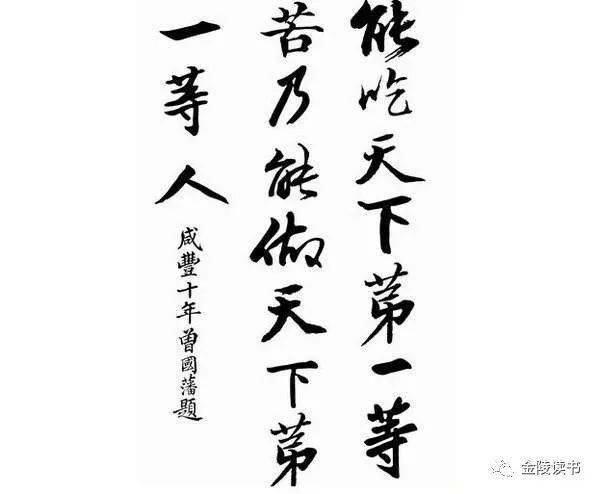 能吃天下第一等
苦乃能做天下第
一等人
咸豐十年曾國藩題
金陵读书